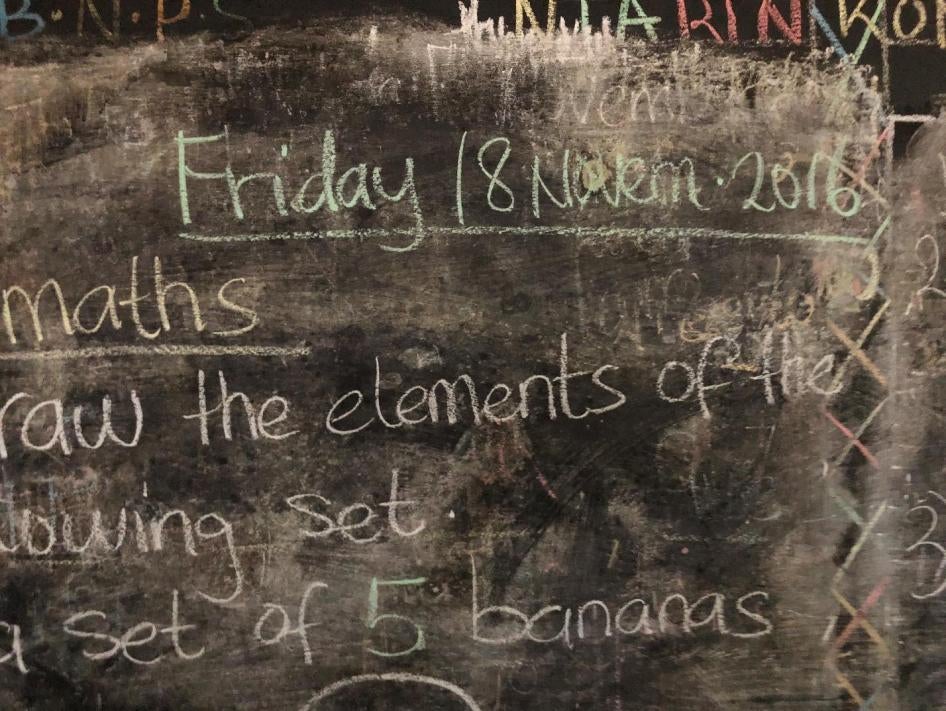 B.N.P.S
Friday 18 Novem. 2016
maths
raw the elements of the
lowing set.
a set of 5 bananas